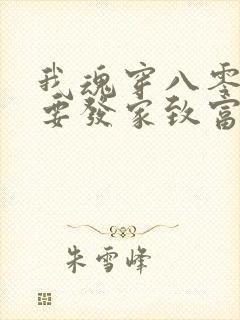 我魂穿八零
要發家致富
朱雪峰